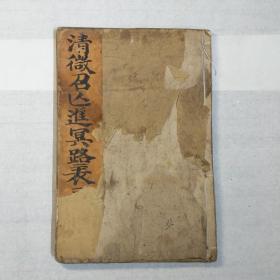 清微召亡進冥路表